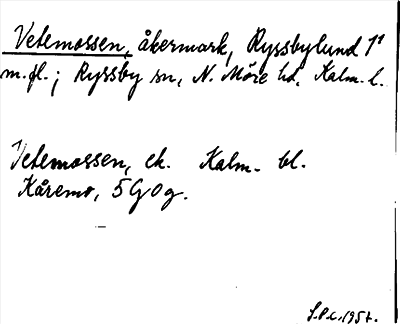 Vetemossen, åkermark, Ryssbylund 1¹
m.fl.; Ryssby sn, N. Möre hd, Kalm. l.
Vetemossen, ek. Kalm. bl.
Kåremo, 5G0g.
1957.